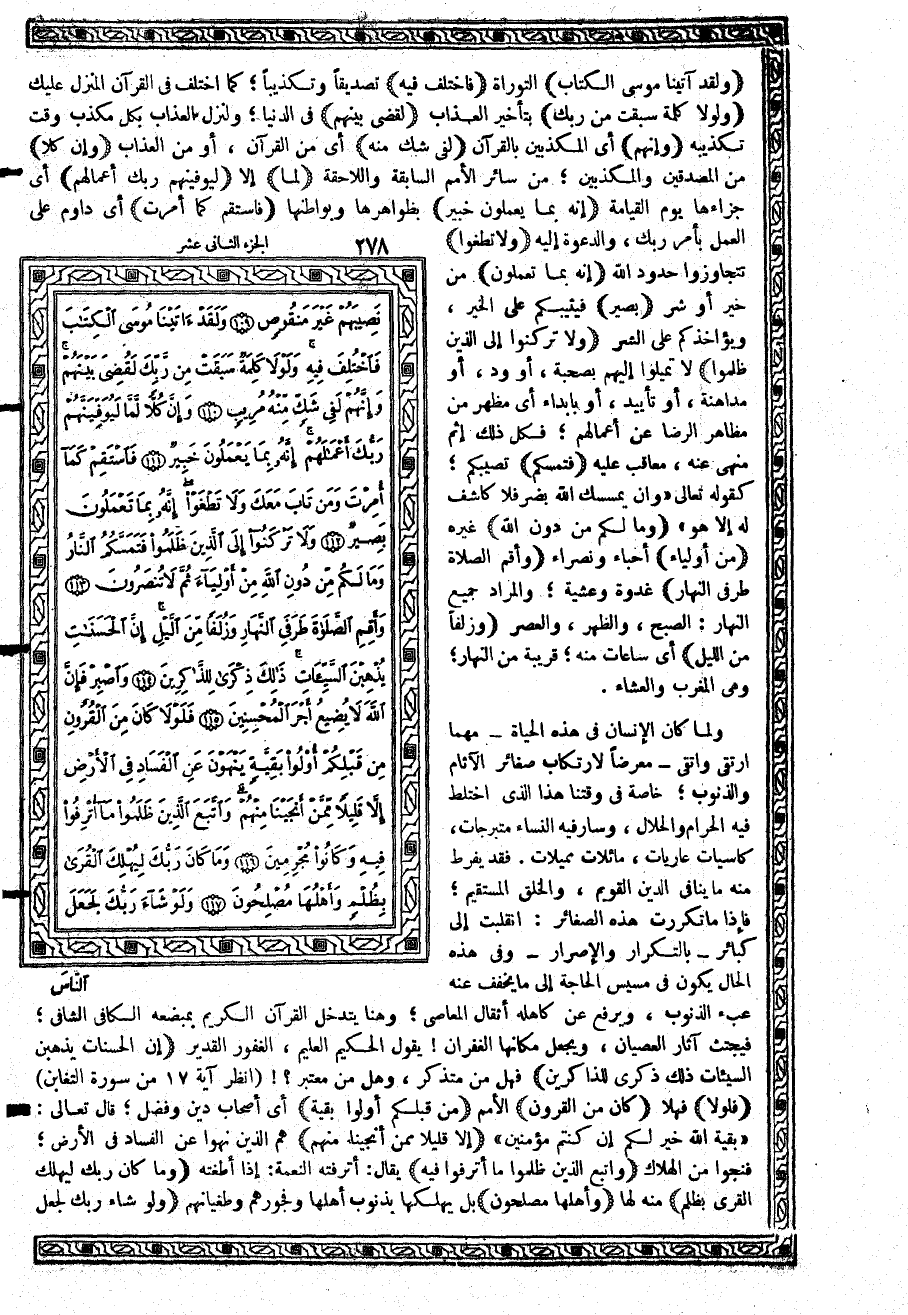 (ولقد آتينا موسى الكتاب) التوراة (فاختلف فيه) تصديقاً وتكذيباً ؛ كما اختلف فى القرآن المنزل عليك
(ولولا كلمة سبقت من ربك) بتأخير العذاب (لقضى بينهم) فى الدنيا ؛ ولنزل العذاب بكل مكذب وقت
تكذيبه (وإنهم) أى المكذبين بالقرآن (لفى شك منه) أى من القرآن ، أو من العذاب (وإن كلا)
من المصدقين والمكذبين ؛ من سائر الأمم السابقة واللاحقة (لما) إلا (ليوفينهم ربك أعمالهم) أى
جزاءها يوم القيامة (إنه بما يعملون خبير) بظواهرها وبواطنها (فاستقم كما أمرت) أى داوم على
العمل بأمر ربك ، والدعوة إليه (ولا تطغوا)
تتجاوزوا حدود الله (إنه بما تعملون) من
خير أو شر (بصير) فيثيبكم على الخير ،
ويؤاخذكم على الشر (ولا تركنوا إلى الذين
ظلموا) لا تميلوا إليهم بصحبة ، أو ود ، أو
مداهنة ، أو تأييد ، أو بإبداء أى مظهر من
مظاهر الرضا عن أعمالهم ؛ فكل ذلك إثم
منهى عنه ، معاقب عليه (فتمسكم) تصيبكم ؛
كقوله تعالى «وإن يمسسك الله بضر فلا كاشف
له إلا هو» (وما لكم من دون الله) غيره
(من أولياء) أحباء ونصراء (وأقم الصلاة
طرفى النهار) غدوة وعشية ؛ والمراد جميع
النهار : الصبح ، والظهر ، والعصر (وزلفاً
من الليل) أى ساعات منه ؛ قريبة من النهار ؛
وهى المغرب والعشاء .
ولما كان الإنسان فى هذه الحياة – مهما
ارتقى واتقى – معرضاً لارتكاب صغائر الآثام
والذنوب ؛ خاصة فى وقتنا هذا الذى اختلط
فيه الحرام والحلال ، وسار فيه النساء متبرجات ،
كاسيات عاريات ، مائلات مميلات . فقد يفرط
منه ما ينافى الدين القويم ، والخلق المستقيم ؛
فإذا ما تكررت هذه الصغائر : انقلبت إلى
كبائر – بالتكرار والإصرار – وفى هذه
الحال يكون فى مسيس الحاجة إلى ما يخفف عنه
الجزء الثانى عشر ٢٧٨
نَصِيبَهُمْ غَيْرَ مَنقُوصٍ ١٠٩ وَلَقَدْ ءَاتَيْنَا مُوسَى ٱلْكِتَٰبَ
فَٱخْتُلِفَ فِيهِ وَلَوْلَا كَلِمَةٌ سَبَقَتْ مِن رَّبِّكَ لَقُضِيَ بَيْنَهُمْ
وَإِنَّهُمْ لَفِى شَكٍّ مِّنْهُ مُرِيبٍ ١١٠ وَإِنَّ كُلًّا لَّمَّا لَيُوَفِّيَنَّهُمْ
رَبُّكَ أَعْمَٰلَهُمْ إِنَّهُۥ بِمَا يَعْمَلُونَ خَبِيرٌ ١١١ فَٱسْتَقِمْ كَمَآ
أُمِرْتَ وَمَن تَابَ مَعَكَ وَلَا تَطْغَوْا۟ إِنَّهُۥ بِمَا تَعْمَلُونَ
بَصِيرٌ ١١٢ وَلَا تَرْكَنُوٓا۟ إِلَى ٱلَّذِينَ ظَلَمُوا۟ فَتَمَسَّكُمُ ٱلنَّارُ
وَمَا لَكُم مِّن دُونِ ٱللَّهِ مِنْ أَوْلِيَآءَ ثُمَّ لَا تُنصَرُونَ ١١٣
وَأَقِمِ ٱلصَّلَوٰةَ طَرَفَىِ ٱلنَّهَارِ وَزُلَفًا مِّنَ ٱلَّيْلِ إِنَّ ٱلْحَسَنَٰتِ
يُذْهِبْنَ ٱلسَّيِّـَٔاتِ ذَٰلِكَ ذِكْرَىٰ لِلذَّٰكِرِينَ ١١٤ وَٱصْبِرْ فَإِنَّ
ٱللَّهَ لَا يُضِيعُ أَجْرَ ٱلْمُحْسِنِينَ ١١٥ فَلَوْلَا كَانَ مِنَ ٱلْقُرُونِ
مِن قَبْلِكُمْ أُو۟لُوا۟ بَقِيَّةٍ يَنْهَوْنَ عَنِ ٱلْفَسَادِ فِى ٱلْأَرْضِ
إِلَّا قَلِيلًا مِّمَّنْ أَنجَيْنَا مِنْهُمْ وَٱتَّبَعَ ٱلَّذِينَ ظَلَمُوا۟ مَآ أُتْرِفُوا۟
فِيهِ وَكَانُوا۟ مُجْرِمِينَ ١١٦ وَمَا كَانَ رَبُّكَ لِيُهْلِكَ ٱلْقُرَىٰ
بِظُلْمٍ وَأَهْلُهَا مُصْلِحُونَ ١١٧ وَلَوْ شَآءَ رَبُّكَ لَجَعَلَ
ٱلنَّاسَ
عبء الذنوب ، ويرفع عن كاهله أثقال المعاصى ؛ وهنا يتدخل القرآن الكريم بمبضعه الكافى الشافى ؛
فيجتث آثار العصيان ، ويجعل مكانها الغفران ! يقول الحكيم العليم ، الغفور القدير (إن الحسنات يذهبن
السيئات ذلك ذكرى للذاكرين) فهل من متذكر ، وهل من معتبر ؟ ! (انظر آية ١٧ من سورة التغابن)
(فلولا) فهلا (كان من القرون) الأمم (من قبلكم أولوا بقية) أى أصحاب دين وفضل ؛ قال تعالى :
«بقية الله خير لكم إن كنتم مؤمنين» (إلا قليلا ممن أنجينا منهم) هم الذين نهوا عن الفساد فى الأرض ؛
فنجوا من الهلاك (واتبع الذين ظلموا ما أترفوا فيه) يقال : أترفته النعمة : إذا أطغته (وما كان ربك ليهلك
القرى بظلم) منه لها (وأهلها مصلحون) بل يهلكها بذنوب أهلها وفجورهم وطغيانهم (ولو شاء ربك لجعل